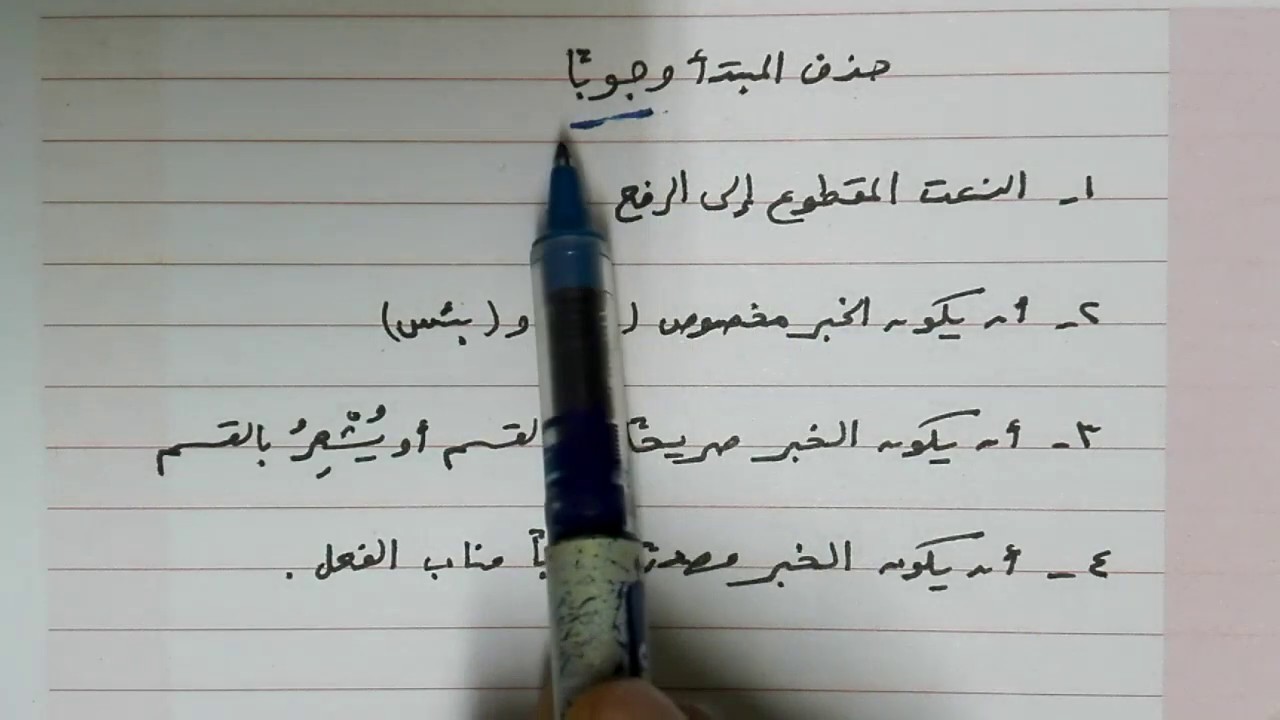 حذف المبتدأ وجوبًا
١ـ النعت المقطوع إلى الرفع
٢ـ أن يكون الخبر مخصوص ( و (بئس)
٣ـ أن يكون الخبر صريحًا لقسم أو يُشْعِرُ بالقسم
٤ـ أن يكون الخبر مناب الفعل .